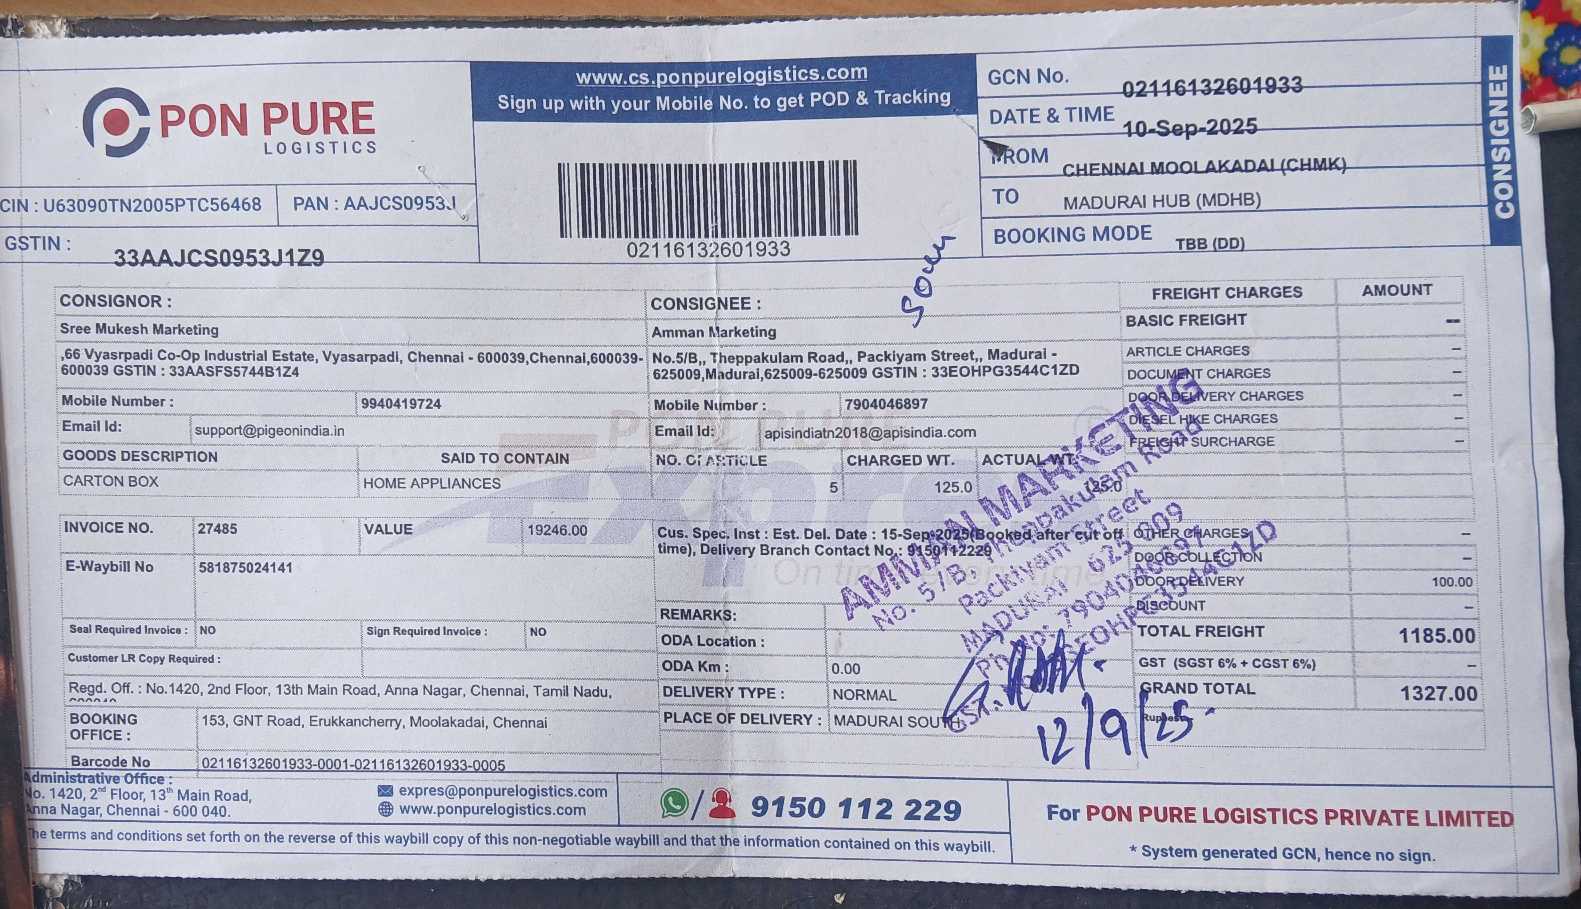 PON PURE
LOGISTICS
CIN : U63090TN2005PTC56468
PAN : AAJCS0953J
GSTIN :
33AAJCS0953J1Z9
www.cs.ponpurelogistics.com
Sign up with your Mobile No. to get POD & Tracking
02116132601933
GCN No.
02116132601933
DATE & TIME
10-Sep-2025
FROM
CHENNAI MOOLAKADAI (CHMK)
TO
MADURAI HUB (MDHB)
BOOKING MODE
TBB (DD)
CONSIGNEE
CONSIGNOR :
Sree Mukesh Marketing
,66 Vyasrpadi Co-Op Industrial Estate, Vyasarpadi, Chennai - 600039,Chennai,600039-
600039 GSTIN : 33AASFS5744B1Z4
Mobile Number :
9940419724
Email Id:
support@pigeonindia.in
CONSIGNEE :
Amman Marketing
No.5/B,, Theppakulam Road,, Packiyam Street,, Madurai -
625009,Madurai,625009-625009 GSTIN : 33EOHPG3544C1ZD
Mobile Number :
7904046897
Email Id:
apisindiatn2018@apisindia.com
GOODS DESCRIPTION
SAID TO CONTAIN
NO. OF ARTICLE
CHARGED WT.
ACTUAL WT.
CARTON BOX
HOME APPLIANCES
5
125.0
125.0
INVOICE NO.
27485
VALUE
19246.00
E-Waybill No
581875024141
Seal Required Invoice :
NO
Sign Required Invoice :
NO
Customer LR Copy Required :
Regd. Off. : No.1420, 2nd Floor, 13th Main Road, Anna Nagar, Chennai, Tamil Nadu,
BOOKING
OFFICE :
153, GNT Road, Erukkancherry, Moolakadai, Chennai
Barcode No
02116132601933-0001-02116132601933-0005
Cus. Spec. Inst : Est. Del. Date : 15-Sep-2025(Booked after cut off
time), Delivery Branch Contact No.: 9150112229
REMARKS:
ODA Location :
ODA Km :
0.00
DELIVERY TYPE :
NORMAL
PLACE OF DELIVERY :
MADURAI SOUTH
FREIGHT CHARGES
AMOUNT
BASIC FREIGHT
--
ARTICLE CHARGES
--
DOCUMENT CHARGES
--
DOOR DELIVERY CHARGES
--
DIESEL HIKE CHARGES
--
FREIGHT SURCHARGE
--
OTHER CHARGES
--
DOOR COLLECTION
--
DOOR DELIVERY
100.00
DISCOUNT
--
TOTAL FREIGHT
1185.00
GST (SGST 6% + CGST 6%)
--
GRAND TOTAL
1327.00
Rupees :
AMMAN MARKETING
No. 5/B, Theppakulam Road
Packiyam Street
MADURAI - 625 009
Ph No: 7904046897
12/9/25
Administrative Office :
No. 1420, 2nd Floor, 13th Main Road,
Anna Nagar, Chennai - 600 040.
expres@ponpurelogistics.com
www.ponpurelogistics.com
9150 112 229
For PON PURE LOGISTICS PRIVATE LIMITED
* System generated GCN, hence no sign.
The terms and conditions set forth on the reverse of this waybill copy of this non-negotiable waybill and that the information contained on this waybill.